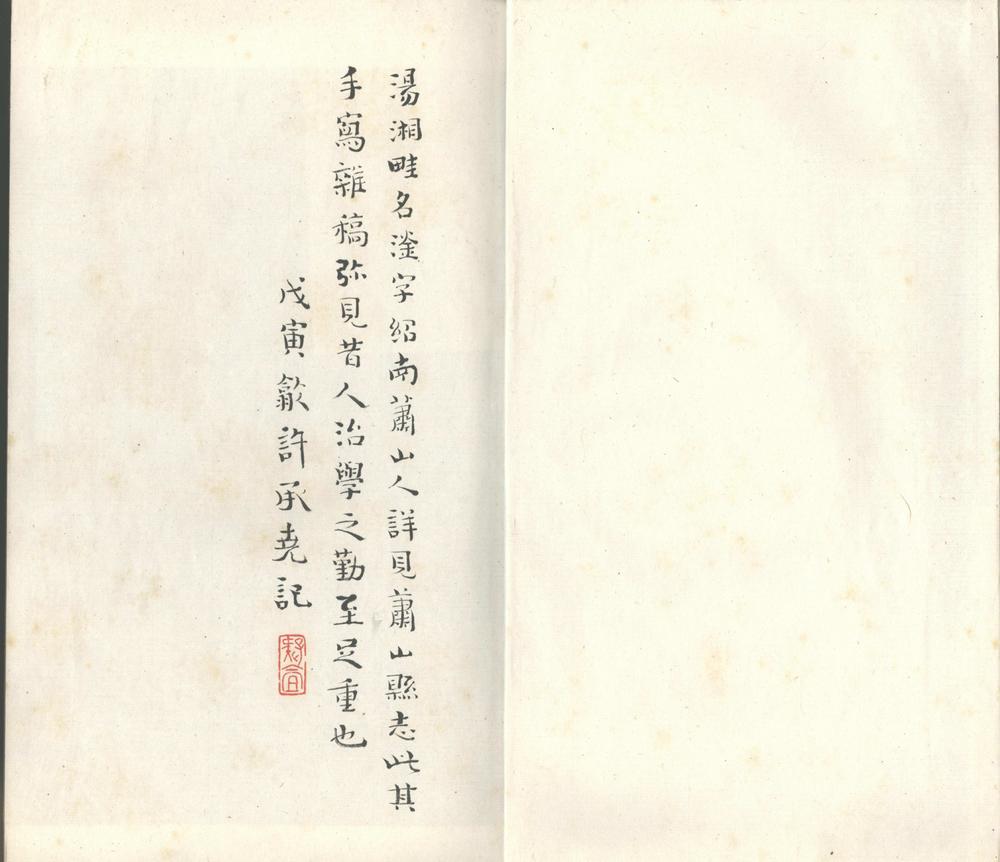 湯湘畦名滏字紹南蕭山人詳見蕭山縣志此其
手寫雜稿弥見昔人治學之勤至足重也
戊寅歙許承堯記
疑盦